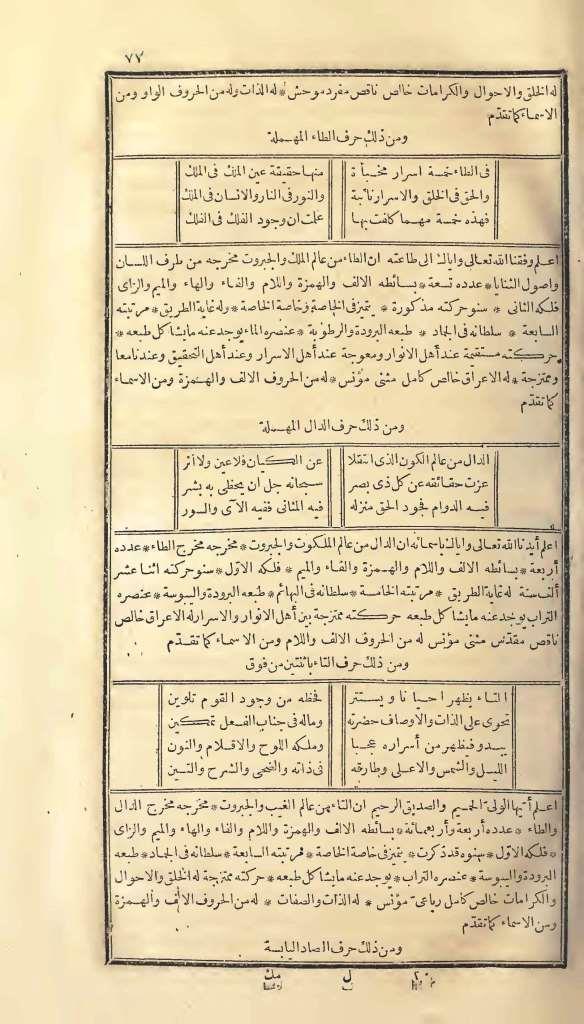 ٧٧
له الخلق والاحوال والكرامات خالص ناقص مفرد موحش * له الذات وله من الحروف الواو ومن
الاسماء كما تقدّم
ومن ذلك حرف الطاء المهملة
فى الطاء خمسة اسرار مخبأة منها حقيقة عين الملك فى الملك
والحق فى الخلق والاسرار نائبة والنور فى النار والانسان فى الملك
فهذه خمسة مهما كلفت بها علمت ان وجود الفلك فى الفلك
اعلم وفقنا الله تعالى واياك الى طاعته ان الطاء من عالم الملك والجبروت مخرجه من طرف اللسان
واصول الثنايا * عدده تسعة * بسائطه الالف والهمزة واللام والفاء والهاء والميم والزاى
فلكه الثانى * سنو حركته مذكورة * يتميز فى الخاصة وخاصة الخاصة * وله غاية الطريق * مرتبته
السابعة * سلطانه فى الجماد * طبعه البرودة والرطوبة * عنصره الماء يوجد عنه ما يشاكل طبعه *
حركته مستقيمة عند أهل الانوار ومعوجة عند أهل الاسرار وعند أهل التحقيق وعندنا معا
وممتزجة * له الاعراق خالص كامل مثنى مؤنس * له من الحروف الالف والهمزة ومن الاسماء
كما تقدّم
ومن ذلك حرف الدال المهملة
الدال من عالم الكون الذى انتقلا عن الكيان فلا عين ولا أثر
عزت حقائقه عن كل ذى بصر سبحانه جل ان يحظى به بشر
فيه الدوام فجود الحق منزله فيه المثانى ففيه الآى والسور
اعلم أيدنا الله تعالى واياك باسمائه ان الدال من عالم الملكوت والجبروت * مخرجه مخرج الطاء * عدده
أربعة * بسائطه الالف واللام والهمزة والفاء والميم * فلكه الاوّل * سنو حركته اثنا عشر
ألف سنة له غاية الطريق * مرتبته الخامسة * سلطانه فى البهائم * طبعه البرودة واليبوسة * عنصره
التراب يوجد عنه ما يشاكل طبعه حركته ممتزجة بين أهل الانوار والاسرار له الاعراق خالص
ناقص مقدّس مثنى مؤنس له من الحروف الالف واللام ومن الاسماء كما تقدّم
ومن ذلك حرف التاء باثنتين من فوق
التاء يظهر احيانا ويستتر فحظه من وجود القوم تلوين
تحوى على الذات والاوصاف حضرته وماله فى جناب الفعل تمكين
يبدو فيظهر من أسراره عجبا وملكه اللوح والاقلام والنون
الليل والشمس والاعلى وطارقه فى ذاته والضحى والشرح والتين
اعلم أيها الولىّ الحميم والصديق الرحيم ان التاء من عالم الغيب والجبروت * مخرجه مخرج الدال
والطاء * عدده أربعة وأربعمائة * بسائطه الالف والهمزة واللام والفاء والهاء والميم والزاى
* فلكه الاوّل * سنوه قد ذكرت * يتميز فى خاصة الخاصة * مرتبته السابعة * سلطانه فى الجماد * طبعه
البرودة واليبوسة * عنصره التراب * يوجد عنه ما يشاكل طبعه * حركته ممتزجة له الخلق والاحوال
والكرامات خالص كامل رباعىّ مؤنس * له الذات والصفات * له من الحروف الالف والهمزة
ومن الاسماء كما تقدّم
ومن ذلك حرف الصاد اليابسة
ل مك